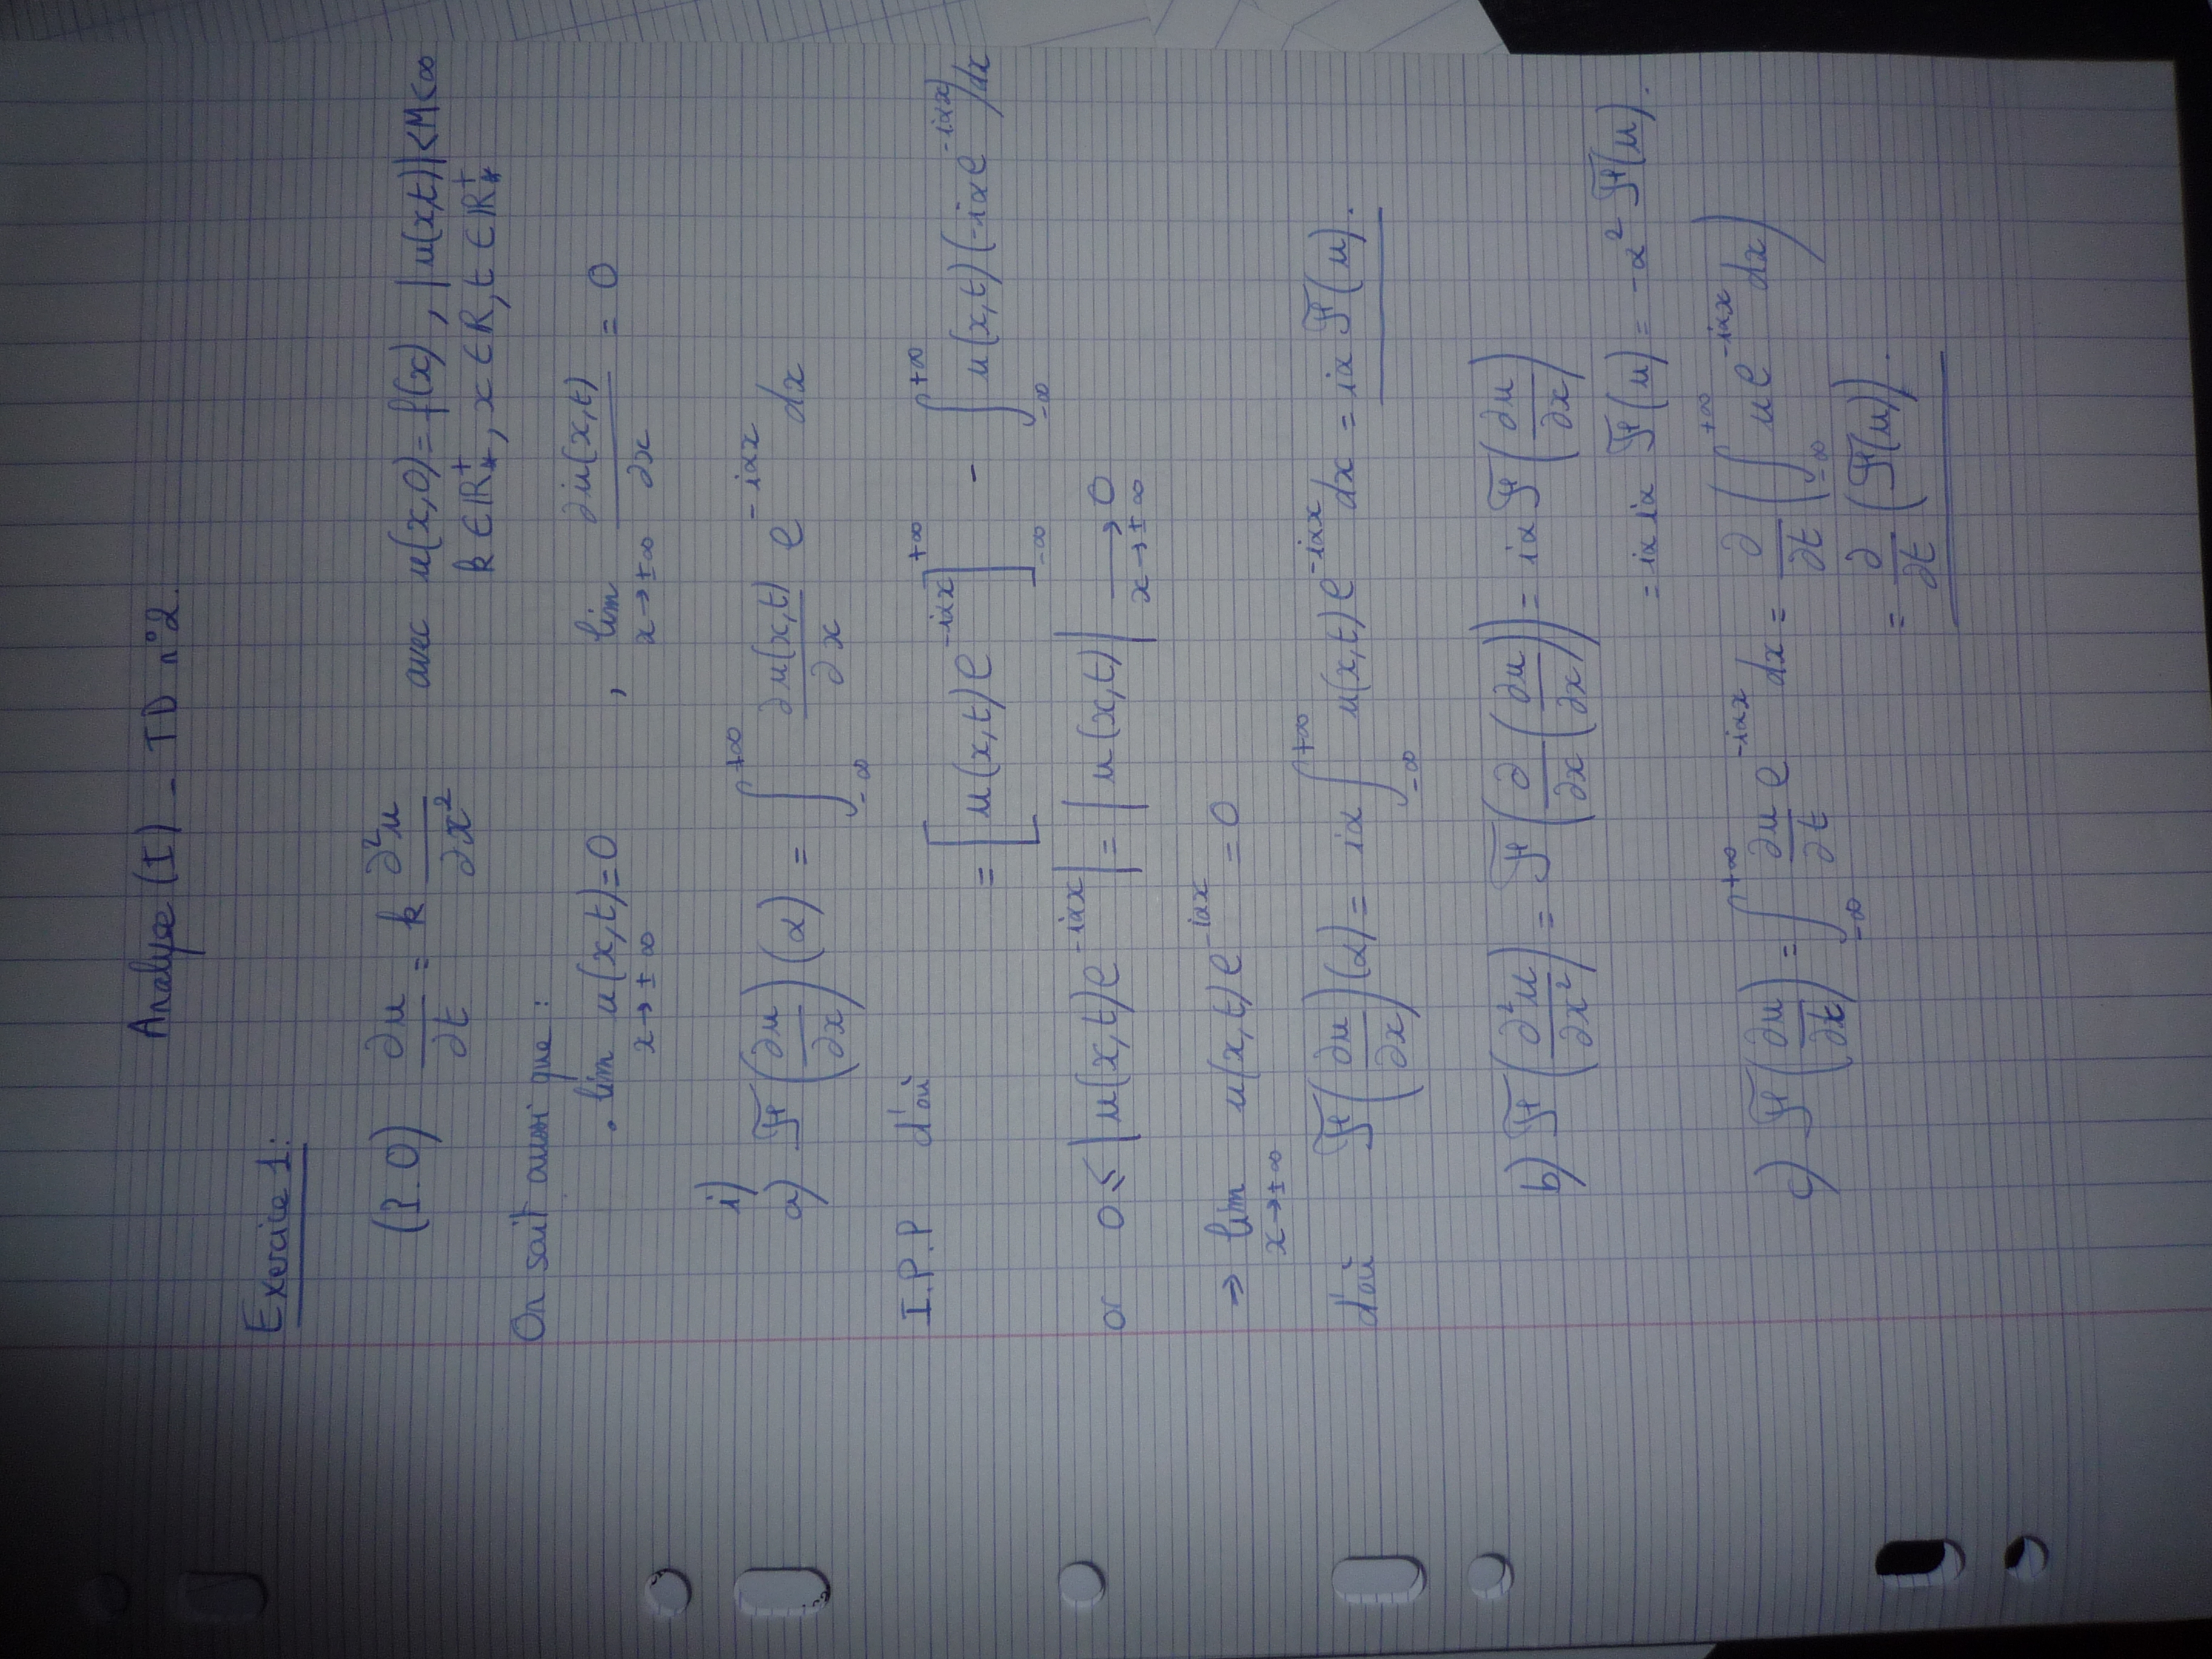 Analyse (I) - TD n°2.
Exercice 1:
(P.O) ∂u/∂t = k ∂²u/∂x² avec u(x,0)=f(x), |u(x,t)|<M<∞
k ∈ ℝ⁺*, x ∈ ℝ, t ∈ ℝ⁺*
On sait aussi que :
• lim x→±∞ u(x,t)=0 , lim x→±∞ ∂u(x,t)/∂x = 0
i)
a) ℱ(∂u/∂x)(α) = ∫_{-∞}^{+∞} ∂u(x,t)/∂x e^{-iαx} dx
I.P.P d'où = [u(x,t)e^{-iαx}]_{-∞}^{+∞} - ∫_{-∞}^{+∞} u(x,t)(-iαe^{-iαx})dx
or 0 ≤ |u(x,t)e^{-iαx}| = |u(x,t)| → 0 x→±∞
⇒ lim x→±∞ u(x,t)e^{-iαx} = 0
d'où ℱ(∂u/∂x)(α) = iα ∫_{-∞}^{+∞} u(x,t)e^{-iαx} dx = iα ℱ(u).
b) ℱ(∂²u/∂x²) = ℱ(∂/∂x(∂u/∂x)) = iα ℱ(∂u/∂x)
= iα iα ℱ(u) = -α² ℱ(u).
c) ℱ(∂u/∂t) = ∫_{-∞}^{+∞} ∂u/∂t e^{-iαx} dx = ∂/∂t (∫_{-∞}^{+∞} u e^{-iαx} dx)
= ∂/∂t (ℱ(u)).